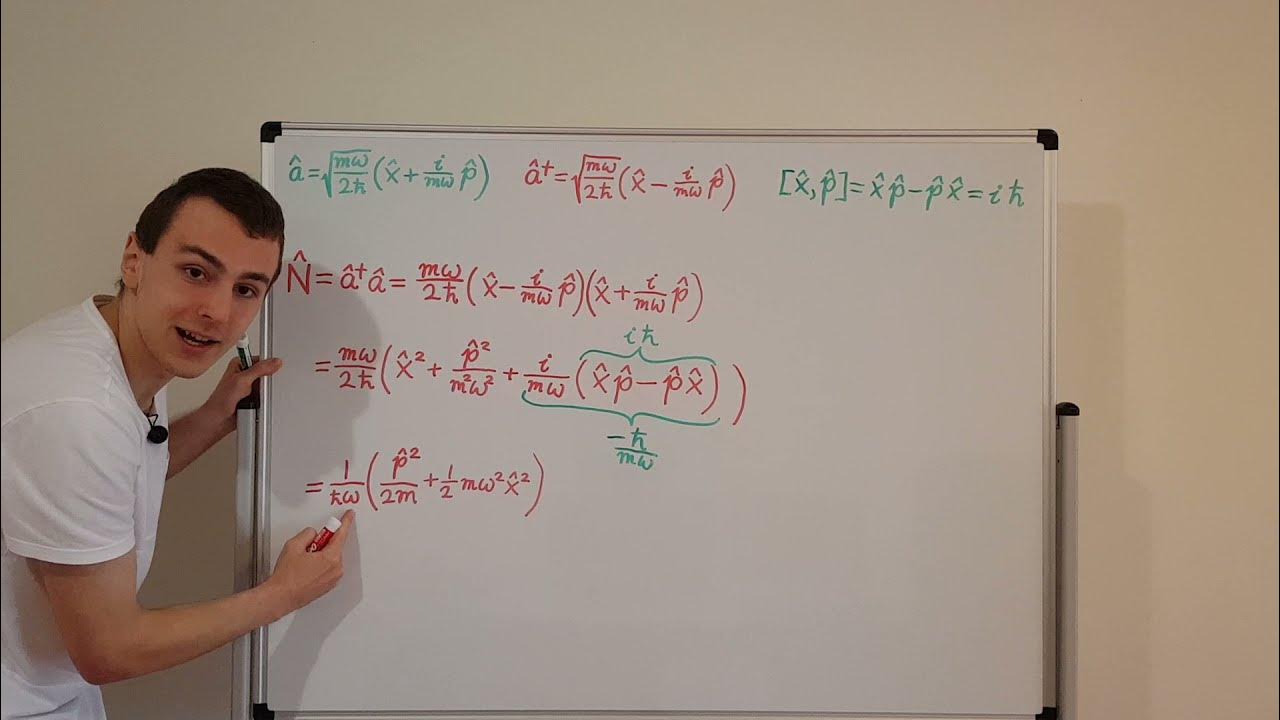 â = √(mω/2ħ) (x̂ + i/mω p̂)   â† = √(mω/2ħ) (x̂ − i/mω p̂)   [x̂, p̂] = x̂p̂ − p̂x̂ = iħ
N̂ = â†â = mω/2ħ (x̂ − i/mω p̂)(x̂ + i/mω p̂)
iħ
= mω/2ħ (x̂² + p̂²/m²ω² + i/mω (x̂p̂ − p̂x̂))
−ħ/mω
= 1/ħω (p̂²/2m + 1/2 mω²x̂²)